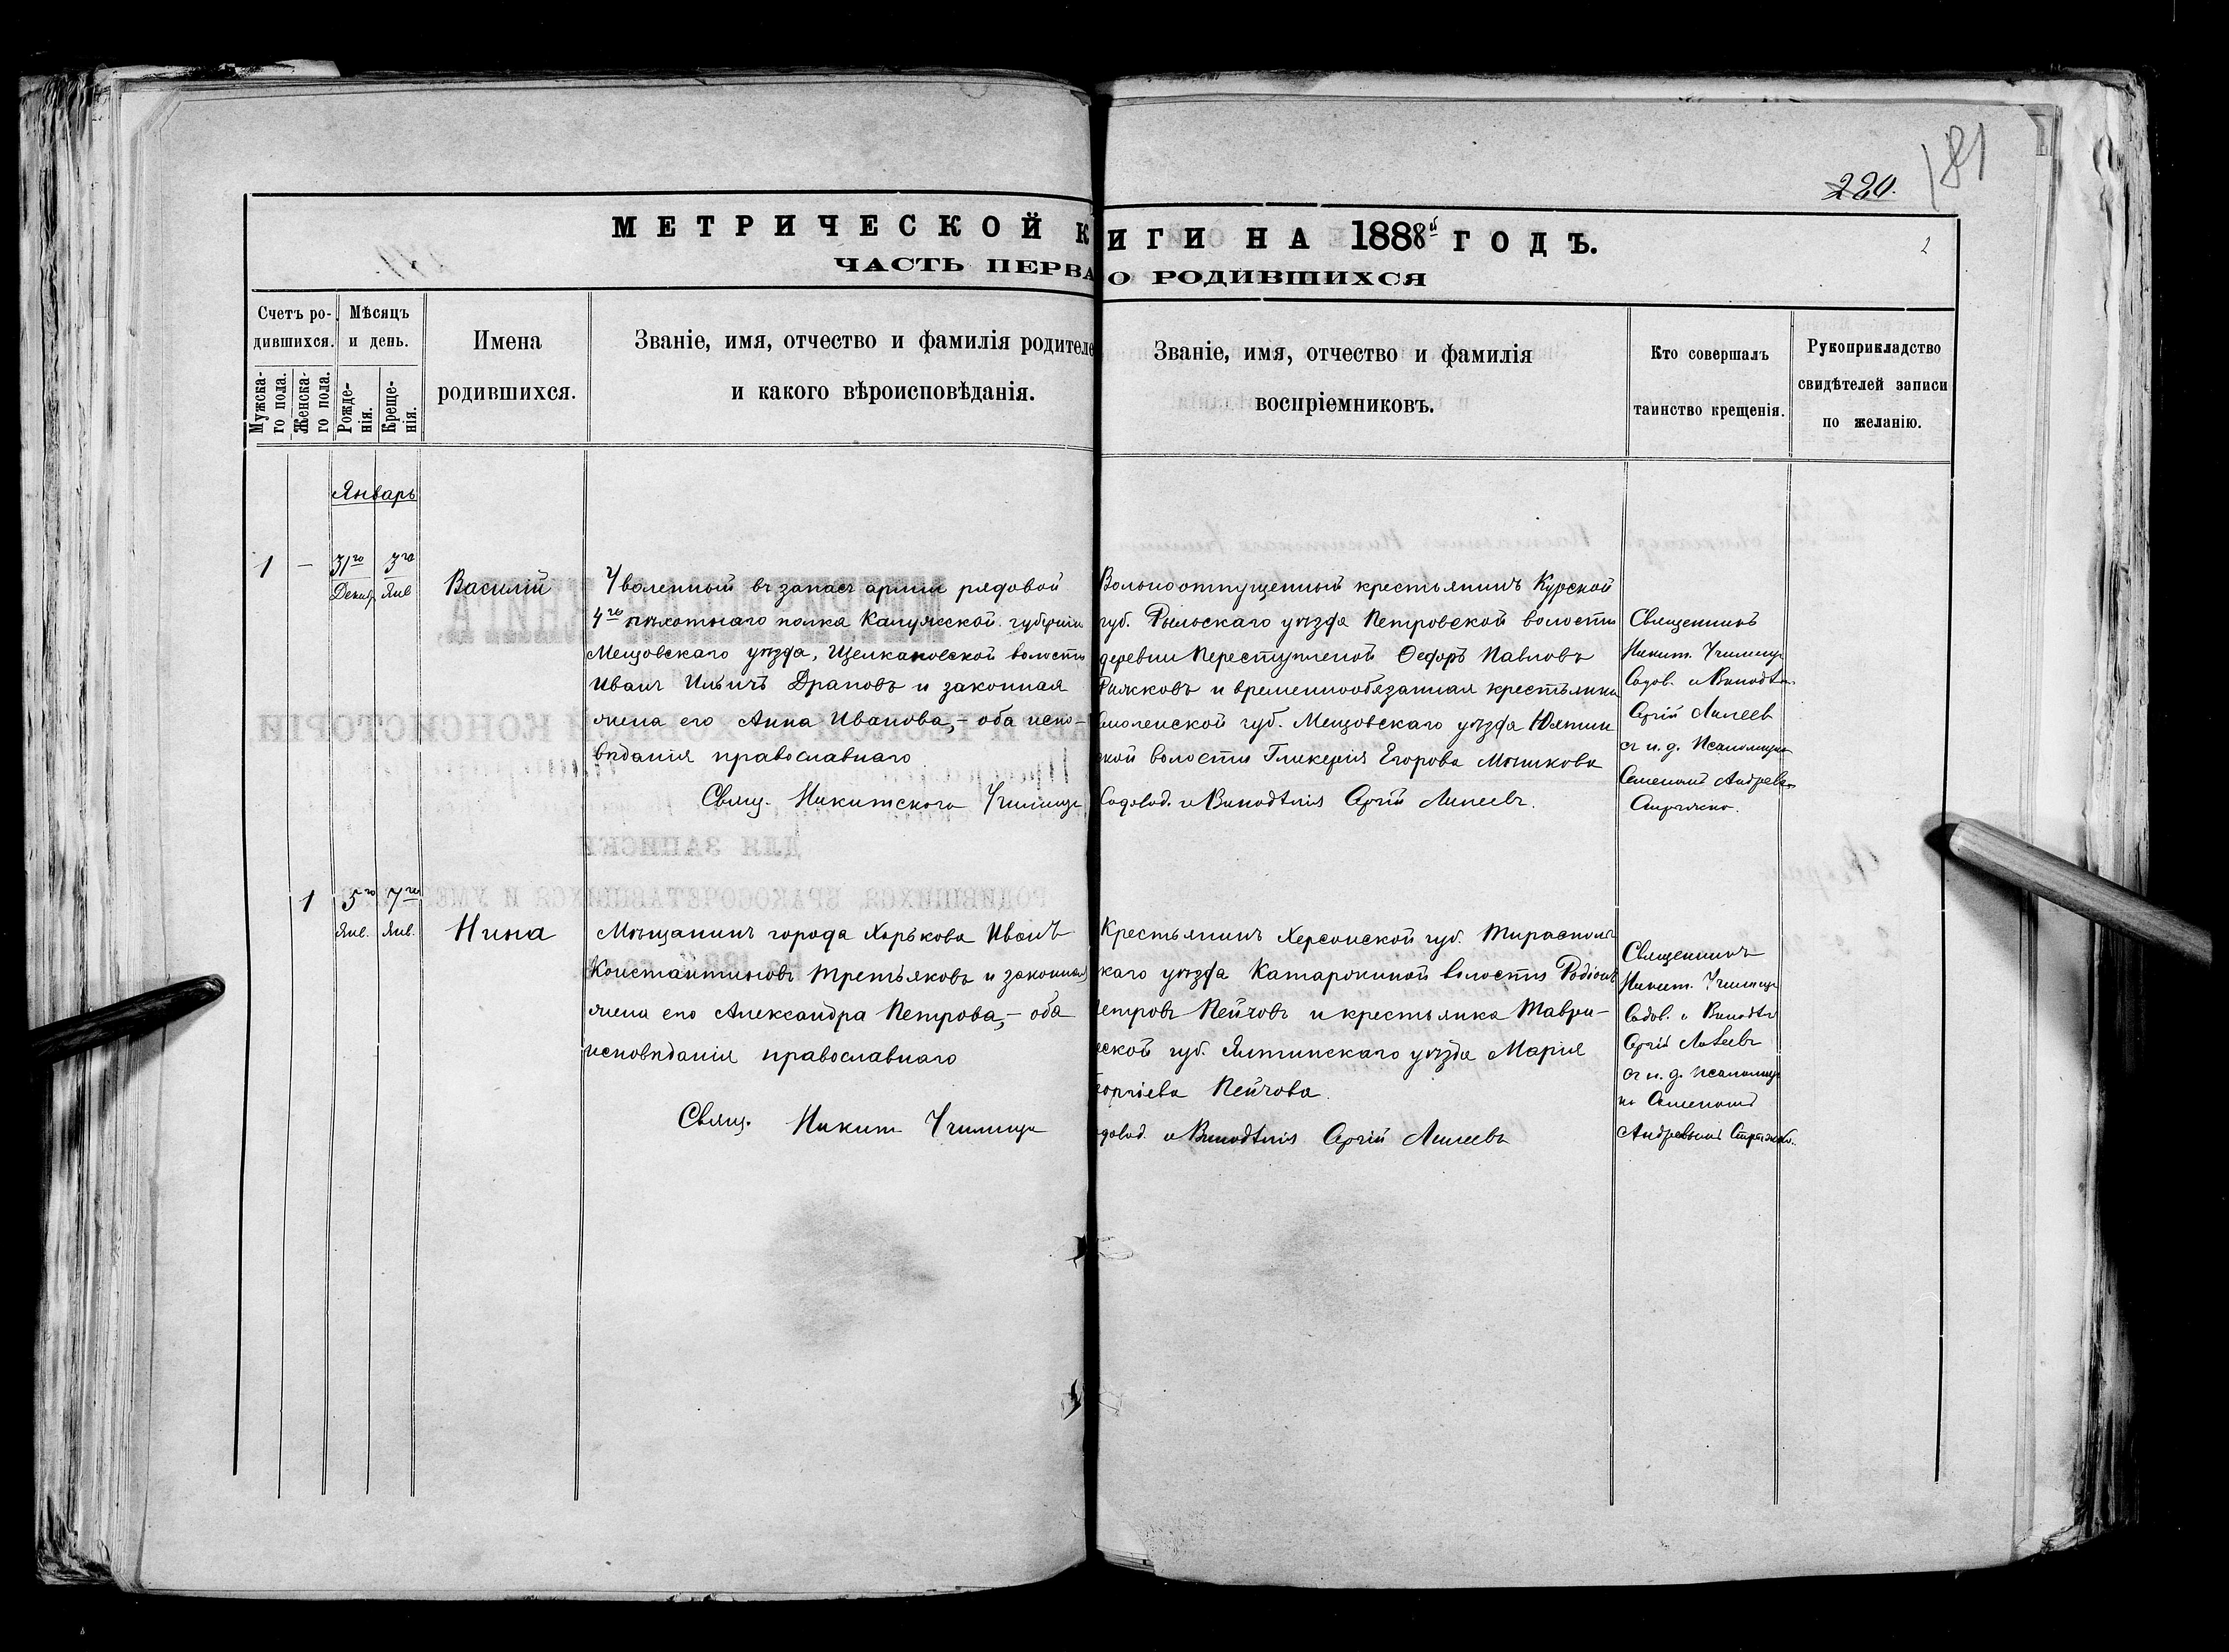 220.
181
МЕТРИЧЕСКОЙ К ИГИ НА 1888й ГОДЪ.
2
ЧАСТЬ ПЕРВА О РОДИВШИХСЯ
Счетъ ро-
дившихся.
Мужска-
го пола.
Женска-
го пола.
Мѣсяцъ
и день.
Рожде-
нія.
Креще-
нія.
Имена
родившихся.
Званіе, имя, отчество и фамилія родителе
и какого вѣроисповѣданія.
Званіе, имя, отчество и фамилія
воспріемниковъ.
Кто совершалъ
таинство крещенія.
Рукоприкладство
свидѣтелей записи
по желанію.
Январь
1 — 31го 3го
Декаб. Янв
Василій
Уволенный въ запасъ арміи рядовой
4го пѣхотнаго полка Калужской губерніи
Мещовскаго уѣзда, Щелкановской волости
Иванъ Ильичъ Драповъ и законная
жена его Анна Иванова,- оба испо-
вѣданія православнаго
Свящ. Никитского Училища
Вольноотпущенный крестьянинъ Курской
губ. Рыльскаго уѣзда Петровской волости
деревни Переступленой Ѳедоръ Павловъ
Рижковъ и временнообязанная крестьянка
Смоленской губ. Мещовскаго уѣзда
кой волости Гликерія Егорова Мошкова
Садовод. и Винодѣлія Сергій
Священникъ
Никит. Училища
Садов. и Винодѣл.
Сергій
съ и. д. Псаломщика
Семеномъ Андреев.
1 5го 7го
Янв. Янв.
Нина
Мѣщанинъ города Харькова Иванъ
Константиновъ Третьяковъ и законная
жена его Александра Петрова,- оба
исповѣданія православнаго
Свящ. Никит Училища
Крестьянинъ Херсонской губ. Тирасполь
скаго уѣзда Катаржиной волости Родіонъ
етровъ Пейчовъ и крестьянка Таври-
еской губ. Ялтинскаго уѣзда Марія
еоргіева Пейчова.
адовод. и Винодѣлія Сергій
Священникъ
Никит. Училища
Садов. и Винодѣл
Сергій
съ и. д. псаломщи
ка Семеномъ
Андреевымъ